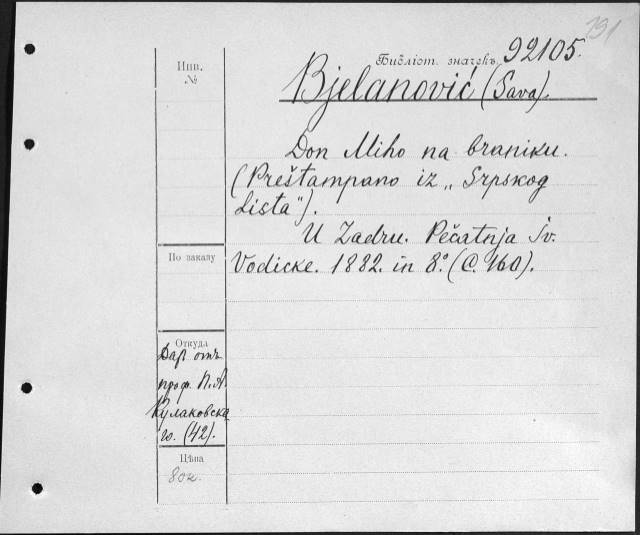 191
Инв.
№
Библіот. значекъ 92105.
Bjelanović (Sava).
Don Miho na braniku.
(Preštampano iz „Srpskog
Lista“).
U Zadru. Pečatnja Iv.
Vodicke. 1882. in 8.° (C. 160).
По заказу
Откуда
Даръ отъ
проф. П. А
Кулаковска
го. (42).
Цѣна
80к.